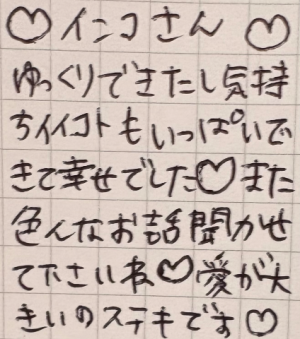 ♡インコさん♡
ゆっくりできたし気持
ちイイコトもいっぱいで
きて幸せでした♡また
色んなお話聞かせ
て下さいね♡愛が大
きいのステキです♡